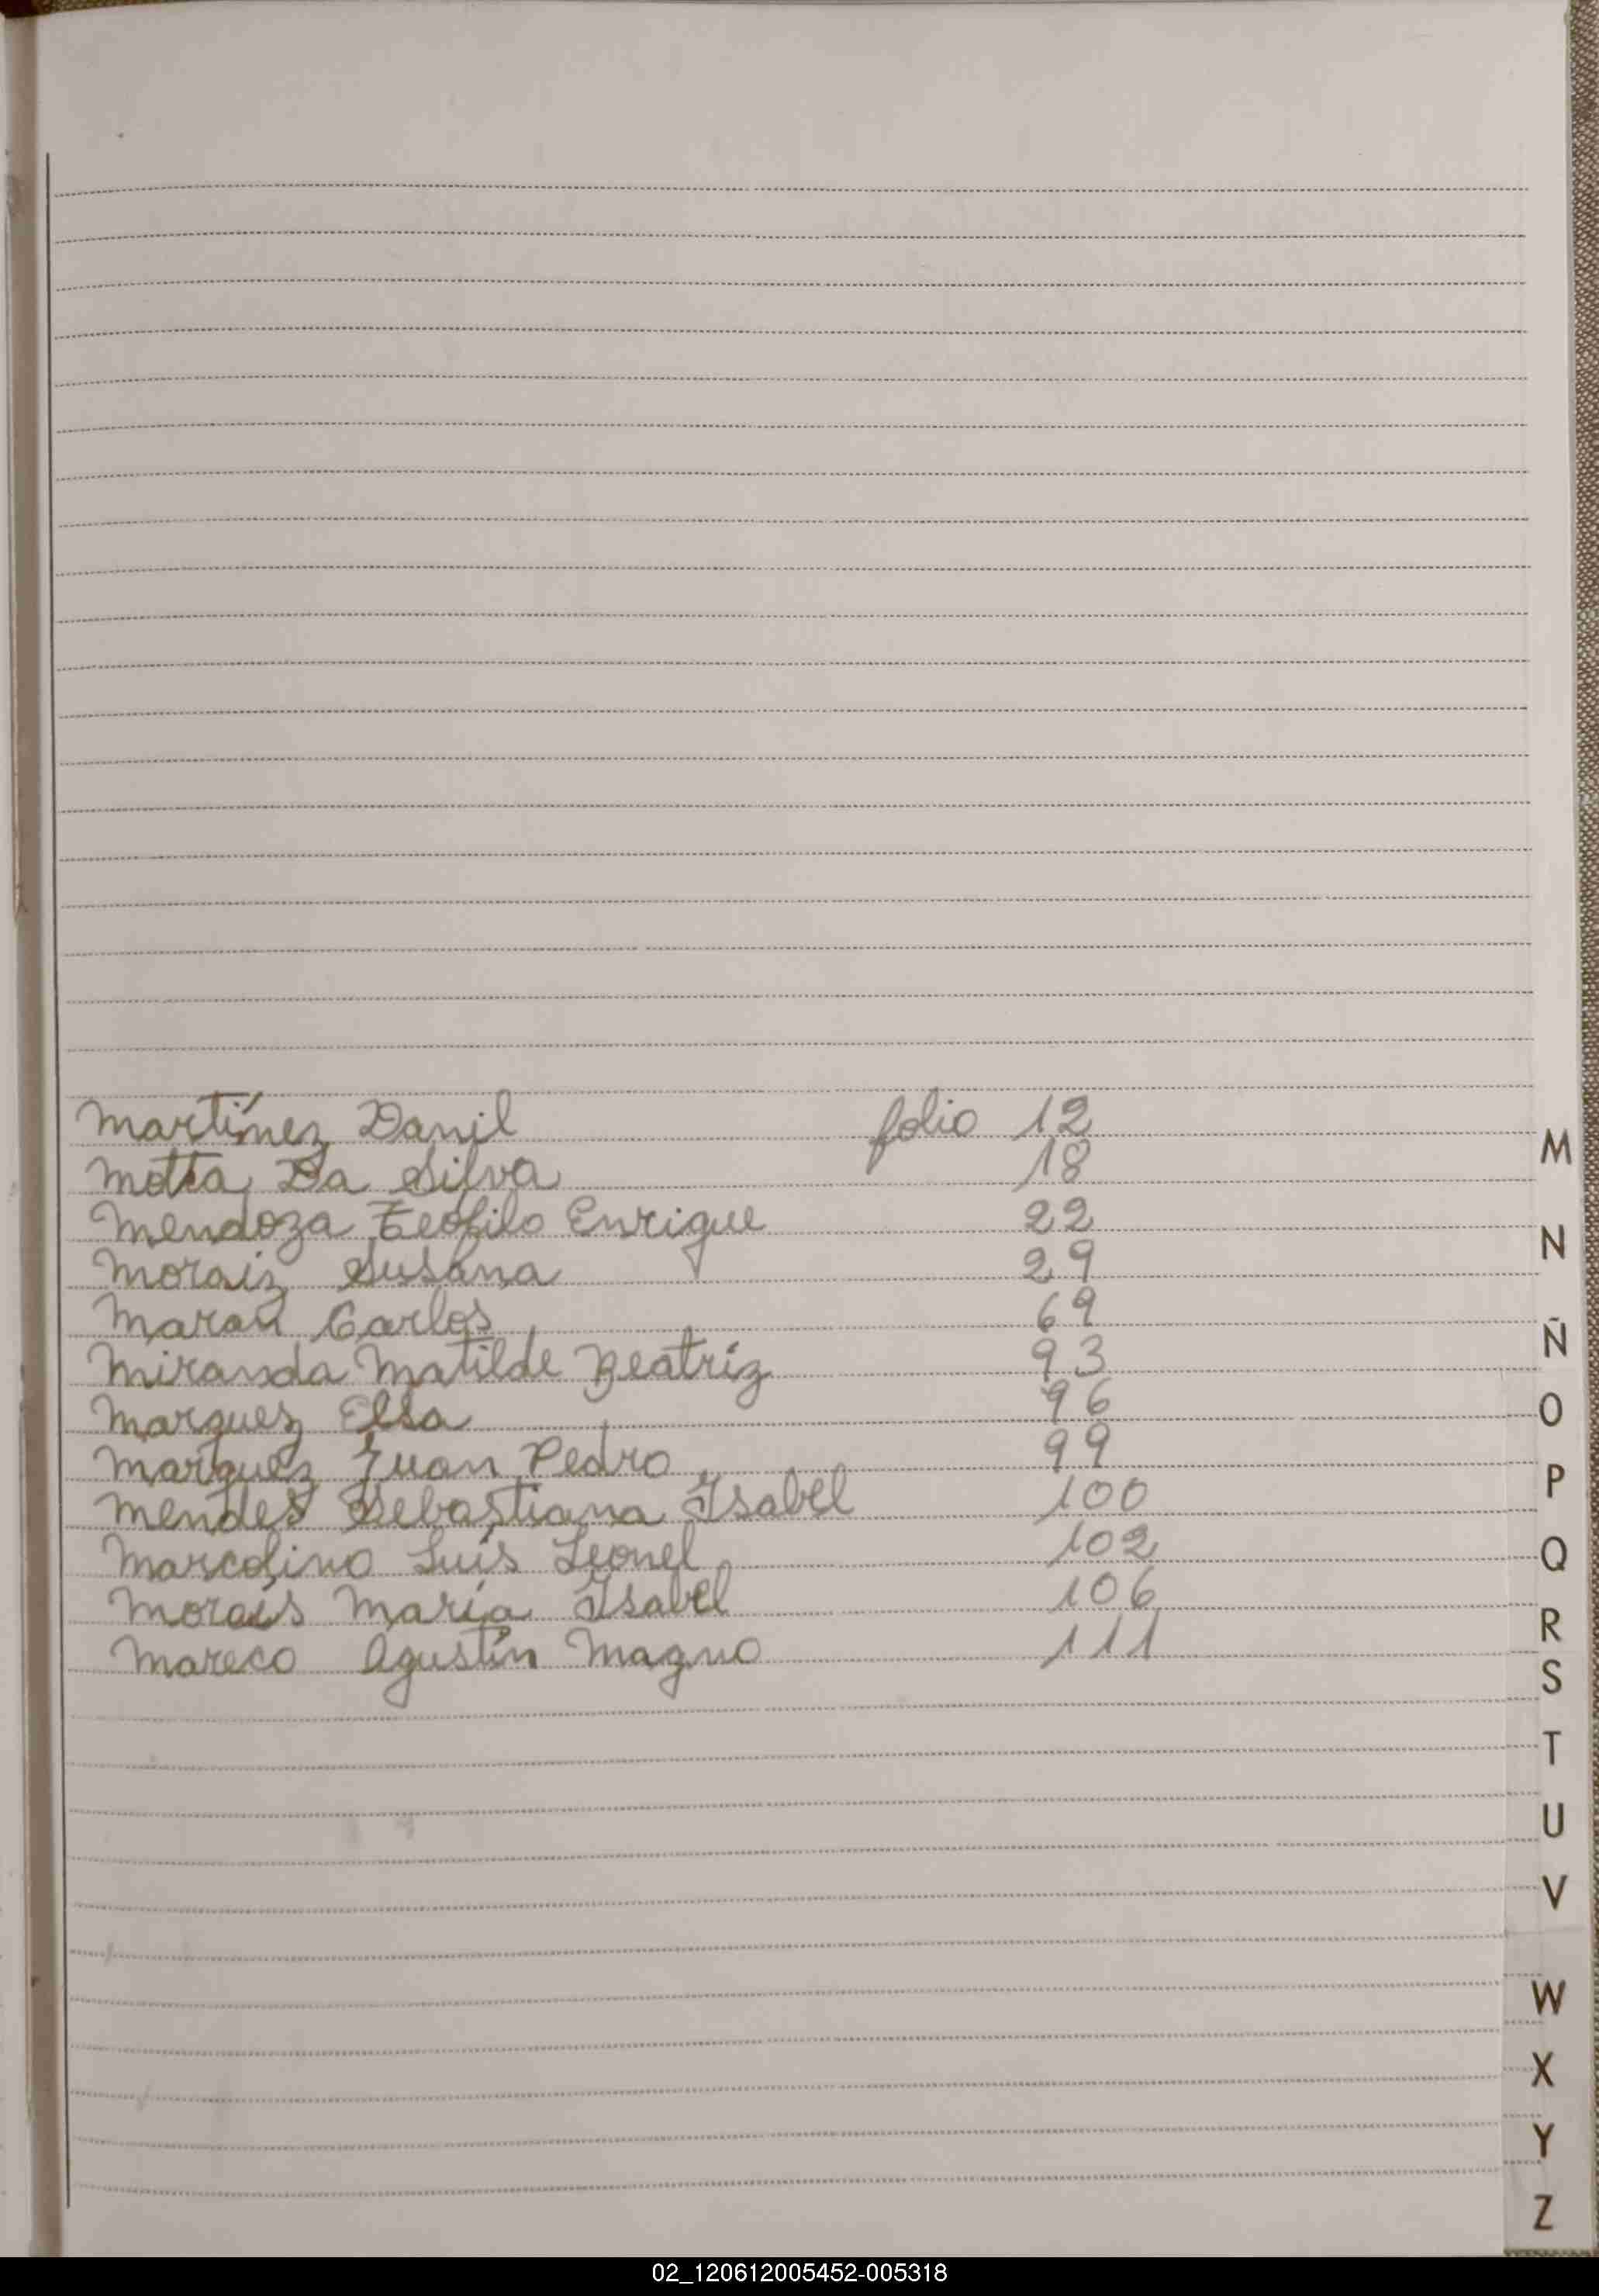 Martínez Danil folio 12
Motta Da Silva 18
Mendoza Teofilo Enrique 22
Moraiz Susana 29
Carlos 69
Miranda Matilde Beatriz 93
Marquez Elsa 96
Marquez Juan Pedro 99
Mendes Sebastiana Isabel 100
Marcolino Luis Leonel 102
Morais María Isabel 106
Mareco Agustín Magno 111
M
N
Ñ
O
P
Q
R
S
T
U
V
W
X
Y
Z
02_120612005452-005318